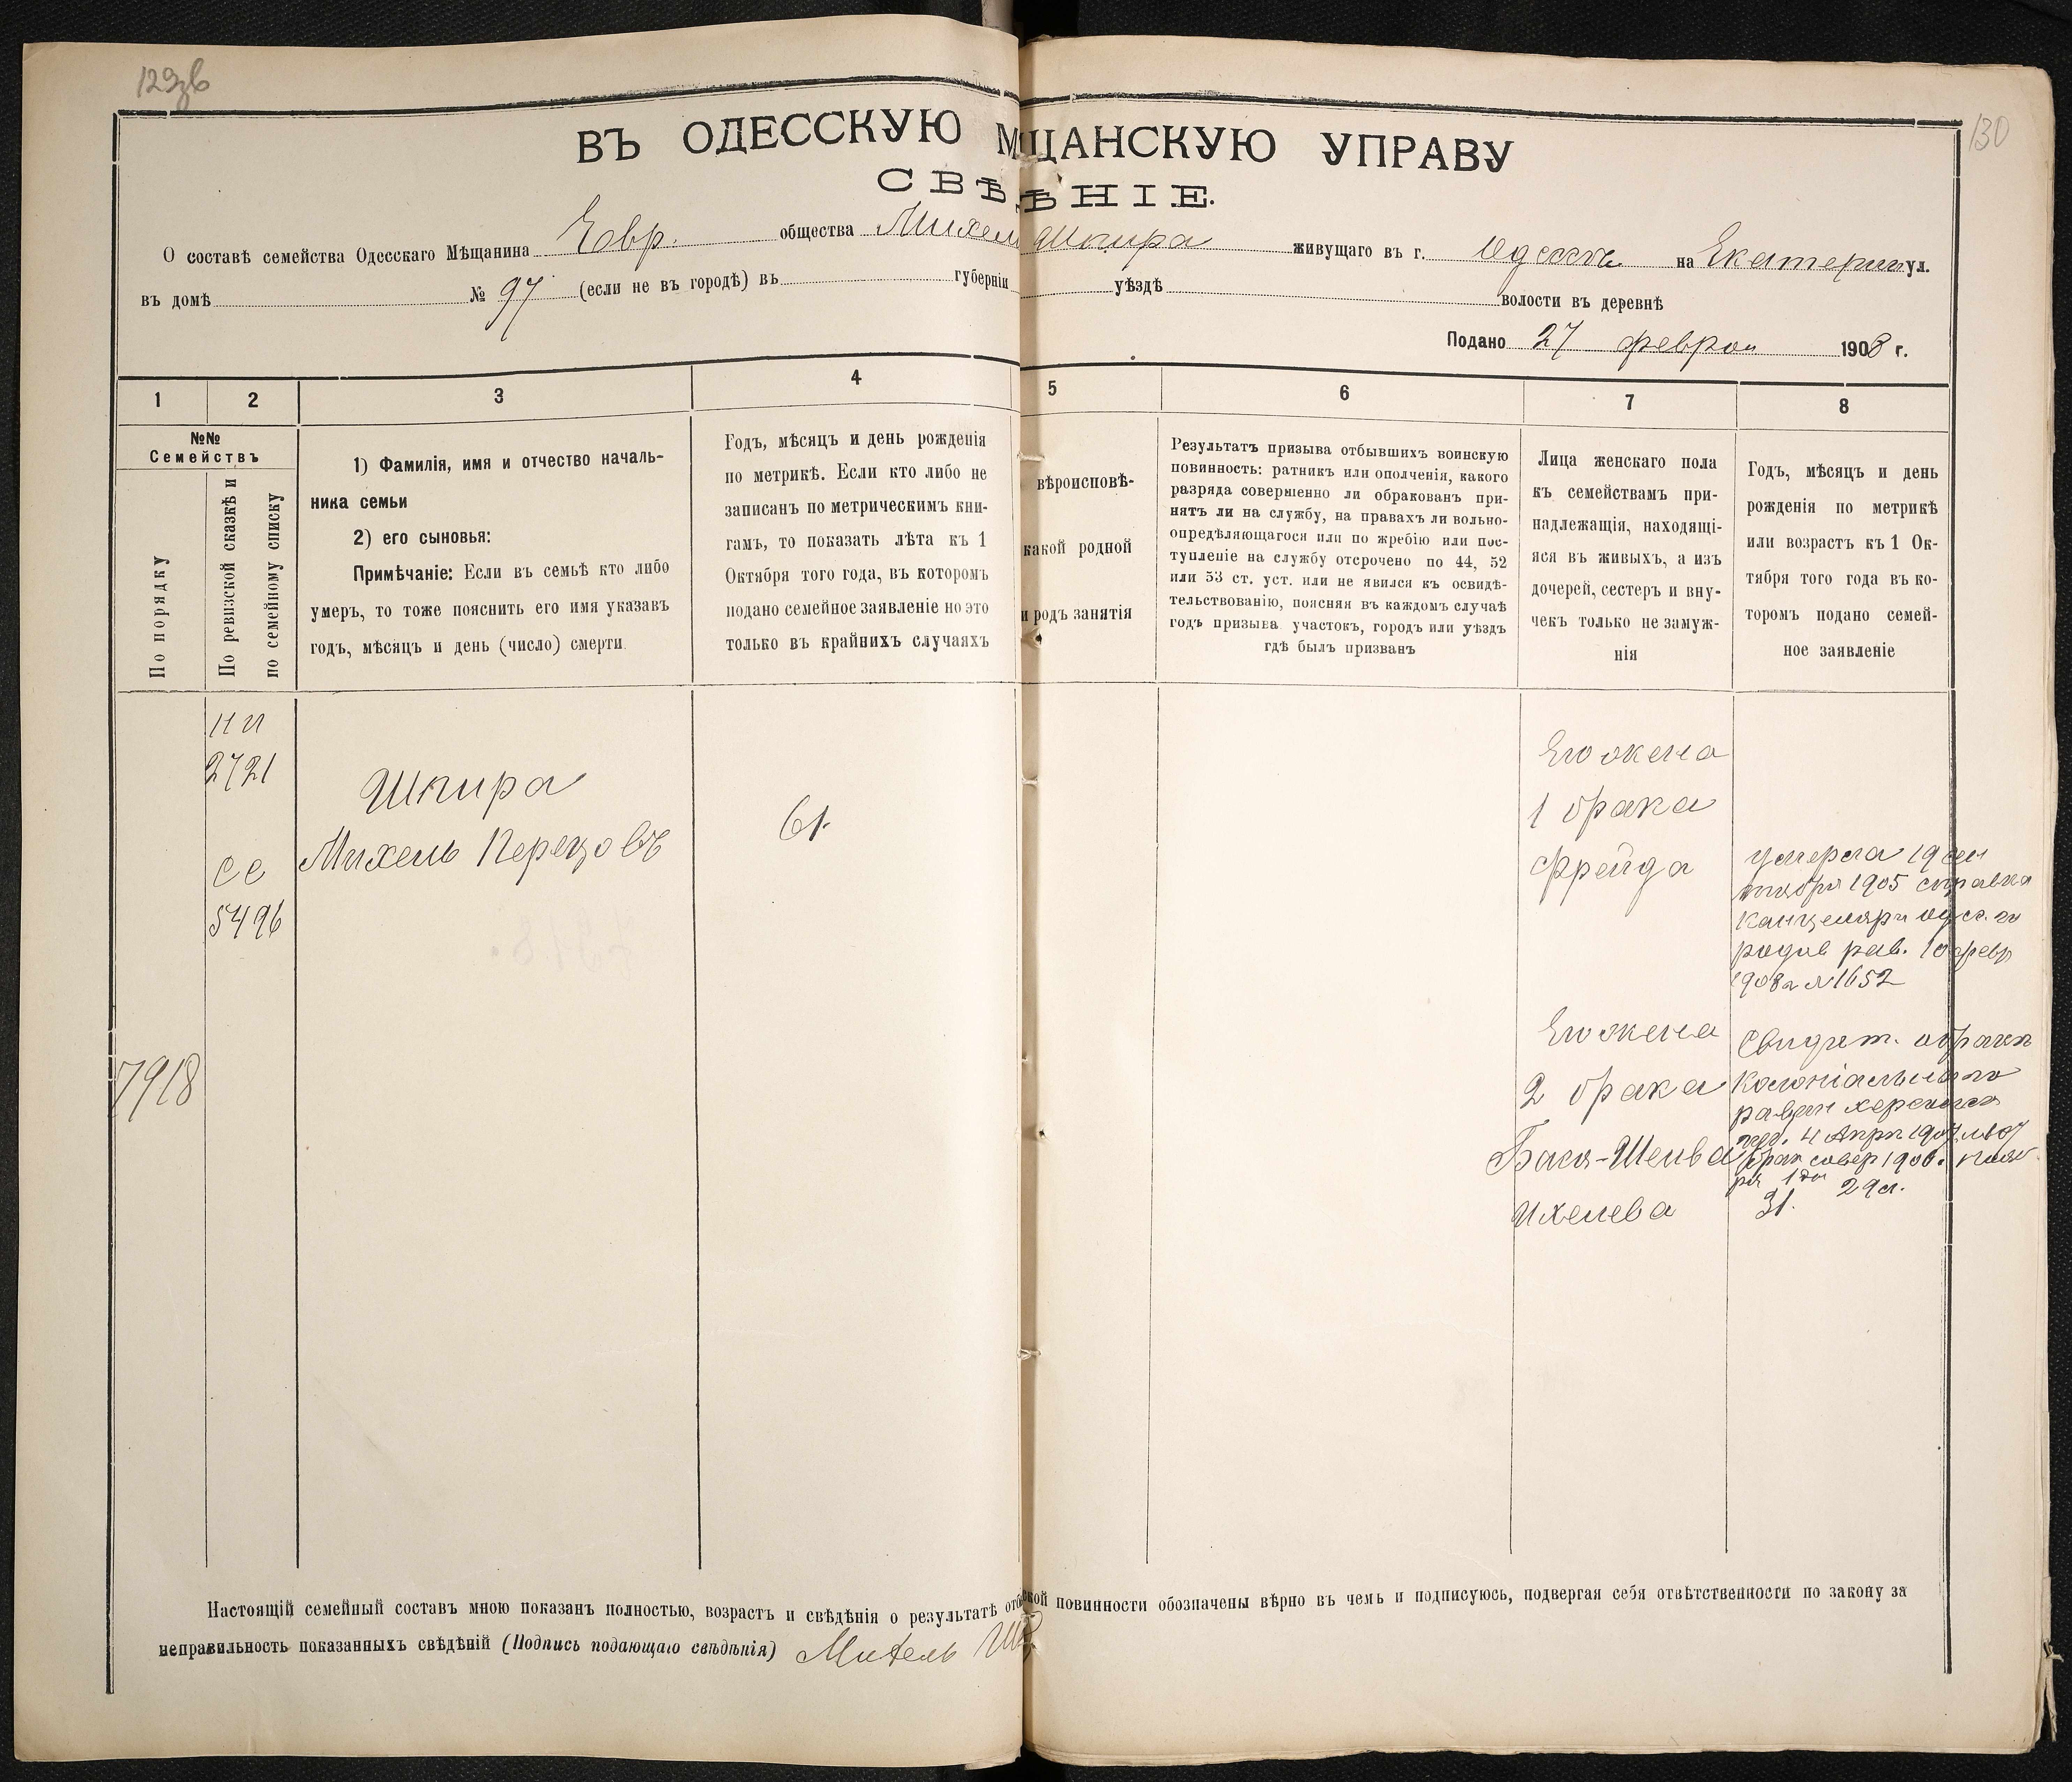 129зв
130
ВЪ ОДЕССКУЮ М ЩАНСКУЮ УПРАВУ
СВѢ ѢНІЕ.
О составѣ семейства Одесскаго Мѣщанина Евр. общества Михел Шпира живущаго въ г. Одессѣ на Екатерин ул.
въ домѣ № 97 (если не въ городѣ) въ губерніи уѣздѣ волости въ деревнѣ
Подано 27 феврал 1908 г.
1 2 3 4 5 6 7 8
№№
Семействъ
По порядку
По ревизской сказкѣ и
по семейному списку
1) Фамилія, имя и отчество началь-
ника семьи
2) его сыновья:
Примѣчаніе: Если въ семьѣ кто либо
умеръ, то тоже пояснить его имя указавъ
годъ, мѣсяцъ и день (число) смерти.
Годъ, мѣсяцъ и день рожденія
по метрикѣ. Если кто либо не
записанъ по метрическимъ кни-
гамъ, то показать лѣта къ 1
Октября того года, въ которомъ
подано семейное заявленіе но это
только въ крайнихъ случаяхъ
вѣроисповѣ-
какой родной
и родъ занятія
Результатъ призыва отбывшихъ воинскую
повинность: ратникъ или ополченія, какого
разряда совершенно ли обракованъ при-
нятъ ли на службу, на правахъ ли вольно-
опредѣляющагося или по жребію или пос-
тупленіе на службу отсрочено по 44, 52
или 53 ст. уст. или не явился къ освидѣ-
тельствованію, поясняя въ каждомъ случаѣ
годъ призыва участокъ, городъ или уѣздъ
гдѣ былъ призванъ
Лица женскаго пола
къ семействамъ при-
надлежащія, находящі-
яся въ живыхъ, а изъ
дочерей, сестеръ и вну-
чекъ только не замуж-
нія
Годъ, мѣсяцъ и день
рожденія по метрикѣ
или возрастъ къ 1 Ок-
тября того года въ ко-
торомъ подано семей-
ное заявленіе
2721
се
5496
7918
Шпира
Михель Перецовъ
61.
Его жена
1 брака
Фрейда
умерла 19 сен
тября 1905 справка
канцеляри одес. го
родов рав. 10 февр
1908 г №1652
Его жена
2 брака
Бася-Шейва
Ихелева
Свидет. о браке
колоніальнаго
равин херсонско
губ. 4 Апрл 1907 №107
брак совер 1906. нояб
ря 1 дн
31. 29 л.
Настоящій семейный составъ мною показанъ полностью, возрастъ и свѣдѣнія о результатѣ отб ской повинности обозначены вѣрно въ чемъ и подписуюсь, подвергая себя отвѣтственности по закону за
неправильность показанныхъ свѣдѣній (Подпись подающаго свѣдѣнія) Михель Шп